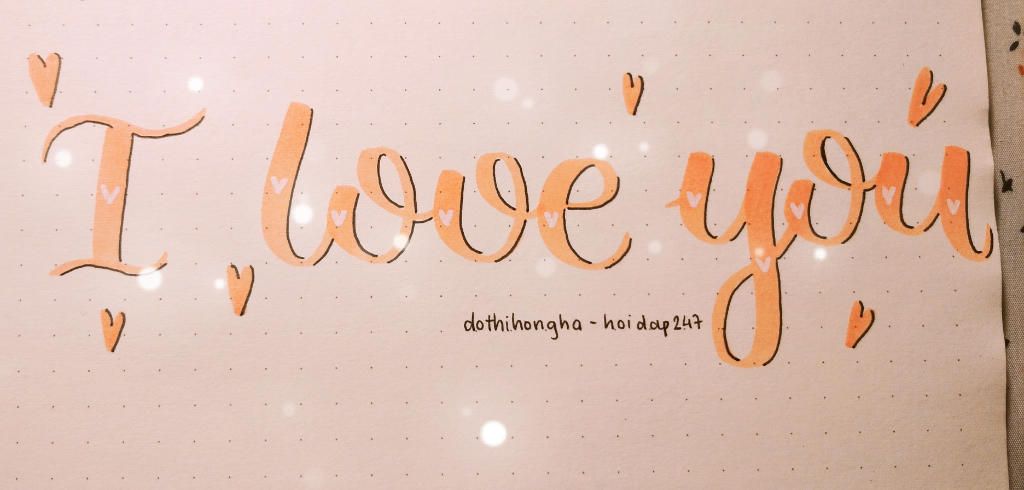 I love you
dothihongha - hoidap247